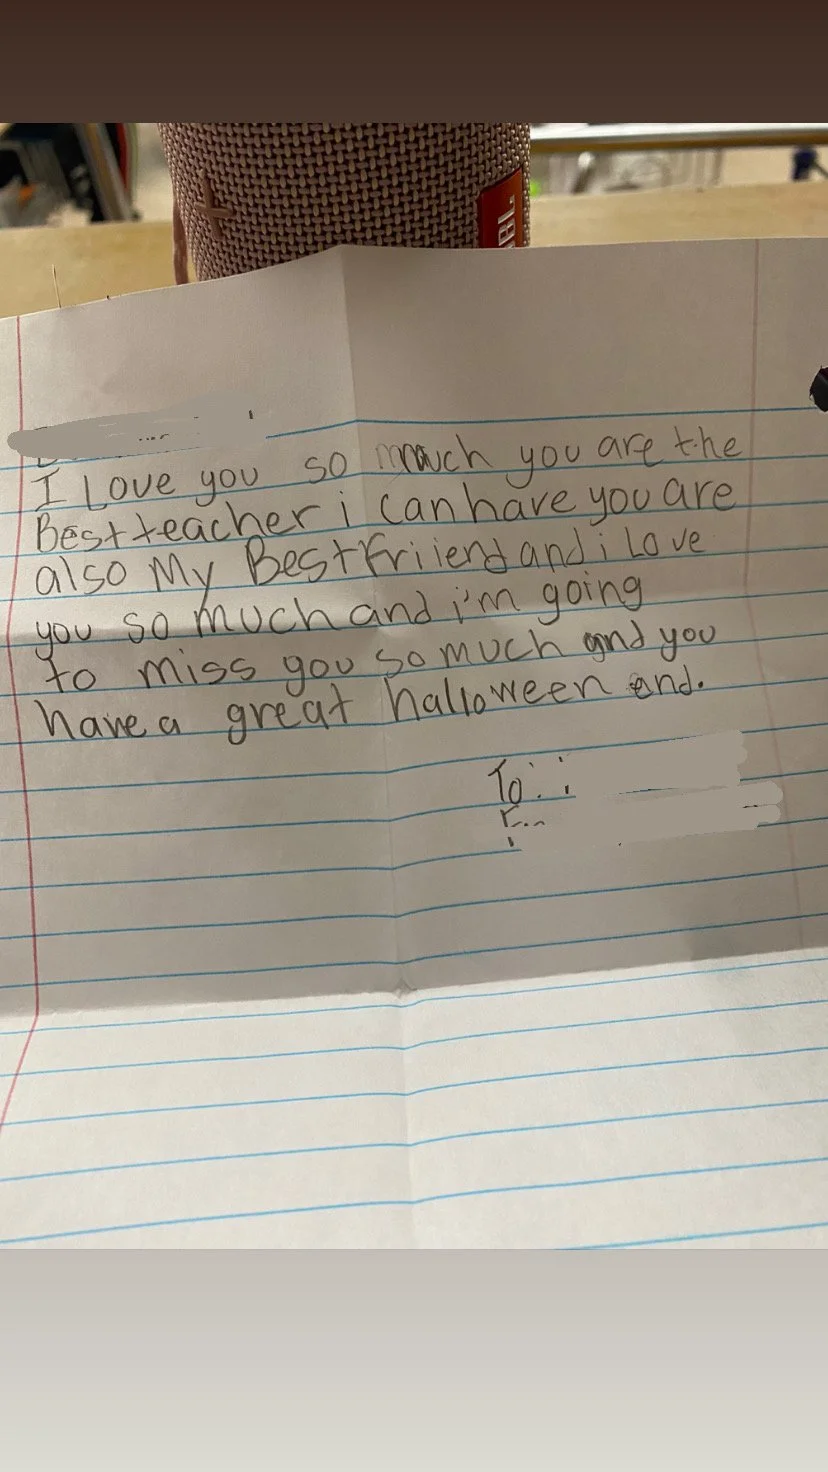 JBL
I Love you so much you are the
Best teacher i can have you are
also My Best friiend and i Love
you so much and i'm going
to miss you so much and you
have a great halloween end.
To: